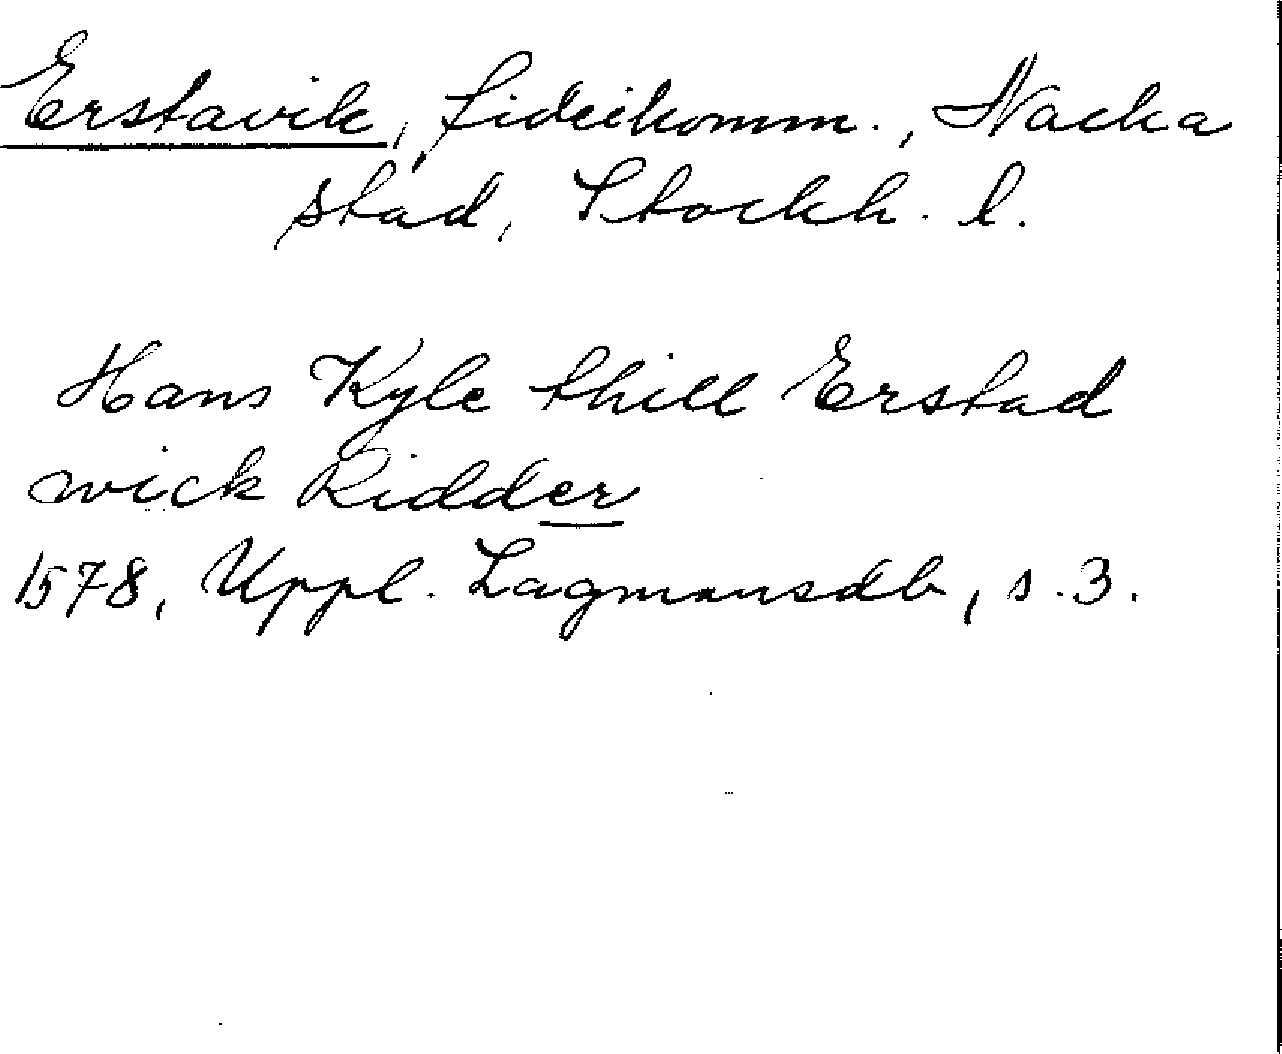 Erstavik, fideikomm., Nacka
stad, Stockh. l.
Hans Kyle thill Erstad
wick Ridder
1578, Uppl. Lagmansdb, s. 3.